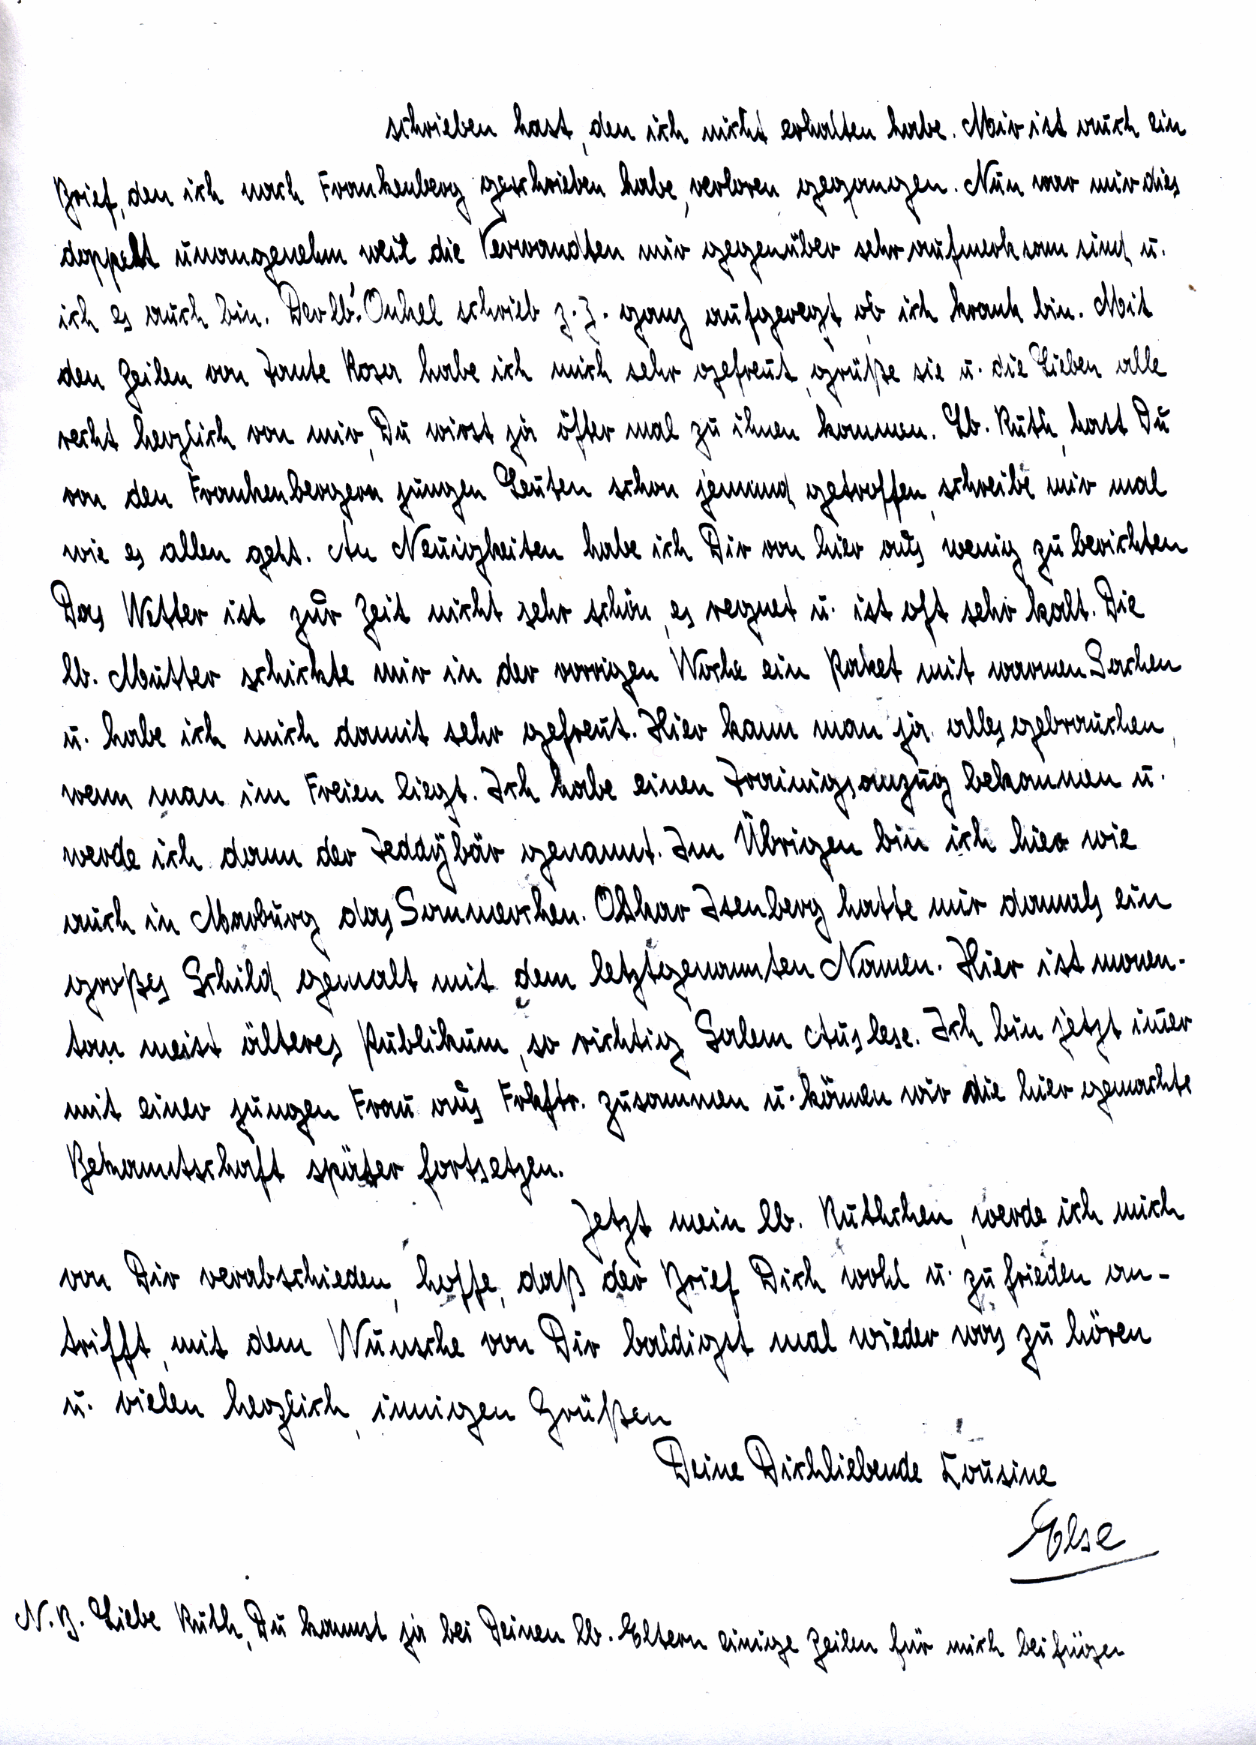 schrieben hast, den ich nicht erhalten habe. Mir ist auch ein
Brief, den ich nach Frankenberg geschrieben habe, verloren gegangen. Nun war mir dies
doppelt unangenehm weil die Verwandten mir gegenüber sehr aufmerksam sind u.
ich es auch bin. Der lb. Onkel schrieb z. Z. ganz aufgeregt ob ich krank bin. Mit
den Zeilen von Tante Rosa habe ich mich sehr gefreut, grüße sie u. die Lieben alle
recht herzlich von mir, Du wirst ja öfter mal zu ihnen kommen. Lb. Ruth, hast Du
von den Frankenbergern jungen Leuten schon jemand getroffen, schreibe mir mal
wie es allen geht. An Neuigkeiten habe ich Dir von hier aus wenig zu berichten
Das Wetter ist zur Zeit nicht sehr schön, es regnet u. ist oft sehr kalt. Die
lb. Mutter schickte mir in der vorrigen Woche ein Paket mit warmen Sachen
u. habe ich mich damit sehr gefreut. Hier kann man ja alles gebrauchen,
wenn man im Freien liegt. Ich habe einen Trainigsanzug bekommen u.
werde ich dann der Teddybär genannt. Im Übrigen bin ich hier wie
auch in Marburg das Sommerchen. Oskar Isenberg hatte mir damals ein
großes Schild gemalt mit dem letztgenannten Namen. Hier ist momen-
tan meist älteres Publikum, so richtig Salem Auslese. Ich bin jetzt imer
mit einer jungen Frau aus Frkftr. zusammen u. könen wir die hier gemachte
Bekanntschaft später fortsetzen.
Jetzt mein lb. Ruthchen, werde ich mich
von Dir verabschieden, hoffe, daß der Brief Dich wohl u. zufrieden an-
trifft, mit dem Wunsche von Dir baldigst mal wieder was zu hören
u. vielen herzlich, innigen Grüßen
Deine Dichliebende Cousine
Else
N.B. Liebe Ruth, Du kannst ja bei Deinen lb. Eltern einige Zeilen für mich beifügen